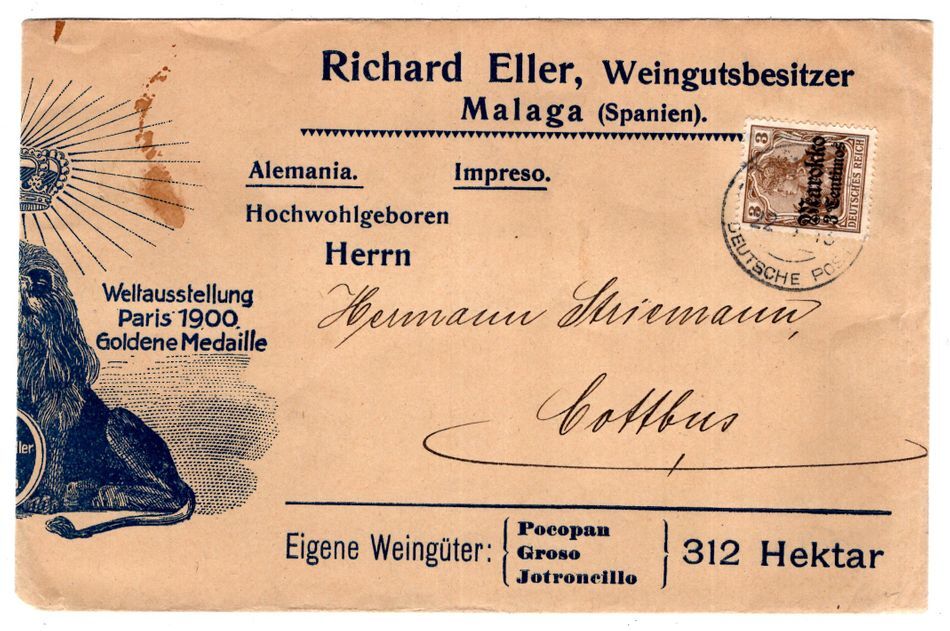 Richard Eller, Weingutsbesitzer
Malaga (Spanien).
Alemania. Impreso.
Hochwohlgeboren
Herrn
Hermann Striemann,
Cottbus
Weltausstellung
Paris 1900.
Goldene Medaille
ller
3 3
DEUTSCHES REICH
Marokko
3 Centimos
22
DEUTSCHE POST
Eigene Weingüter:
Pocopan
Groso
Jotroncillo
312 Hektar